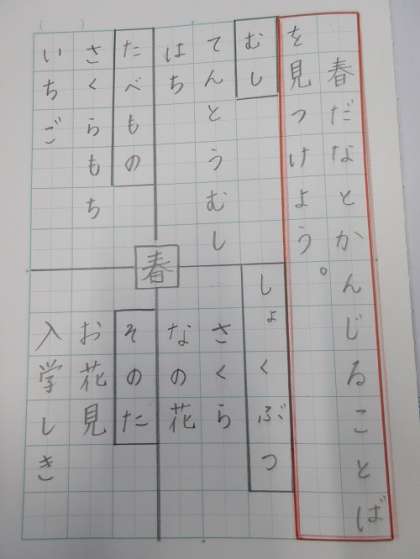 春だなとかんじることば
を見つけよう。
むし
てんとうむし
はち
たべもの
さくらもち
いちご
春
しょくぶつ
さくら
なの花
そのた
お花見
入学しき